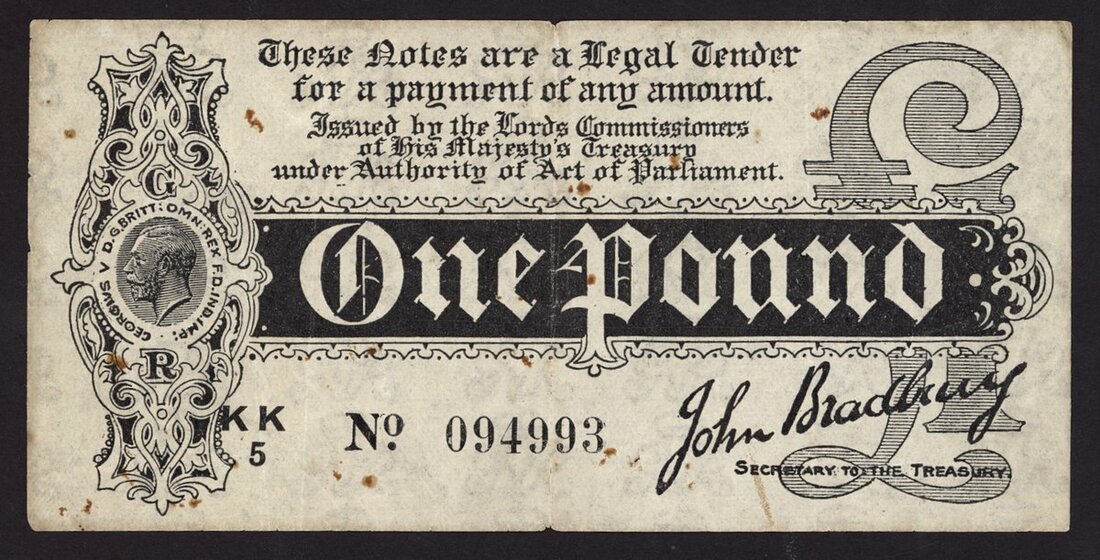 These Notes are a Legal Tender
for a payment of any amount.
Issued by the Lords Commissioners
of His Majesty's Treasury
under Authority of Act of Parliament.
£1
G
GEORGIVS V D.G.BRITT: OMN: REX F.D.IND.IMP:
R
One Pound
KK
5
No 094993
£1
John Bradbury
SECRETARY TO THE TREASURY